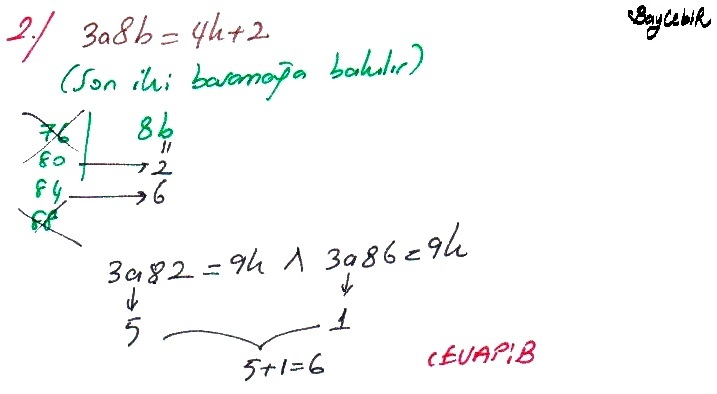 BayCebiR
2.) 3a8b = 4k+2
(Son iki basamağa bakılır)
76 8b
80 → 2
84 → 6
88
3a82 = 9k ∧ 3a86 = 9k
5 1
5+1=6
CEVAP:B